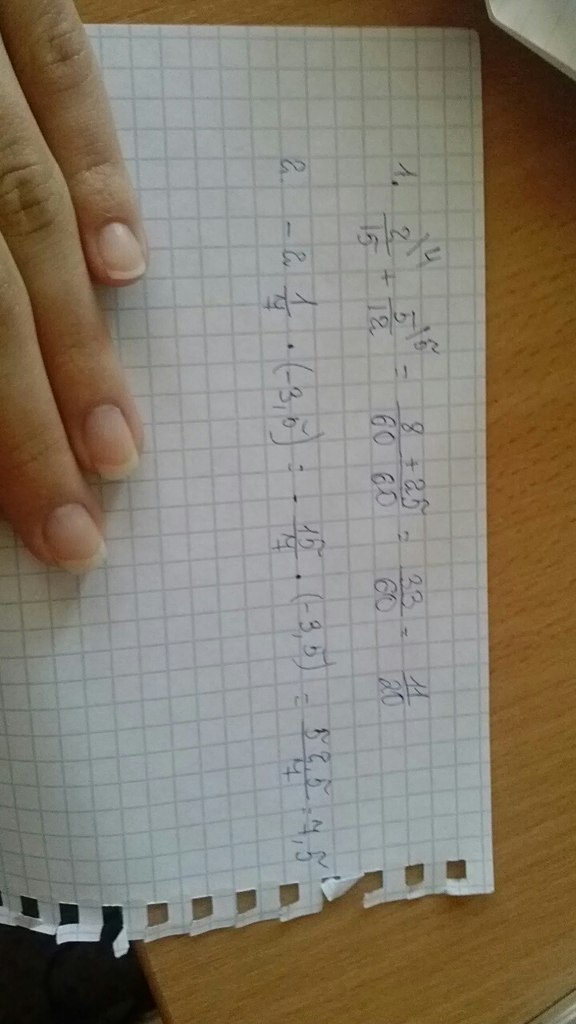 1. 2/15 \4 + 5/12 \5 = 8/60 + 25/60 = 33/60 = 11/20
2. -2 1/7 · (-3,5) = - 15/7 · (-3,5) = 52,5/7 = 7,5